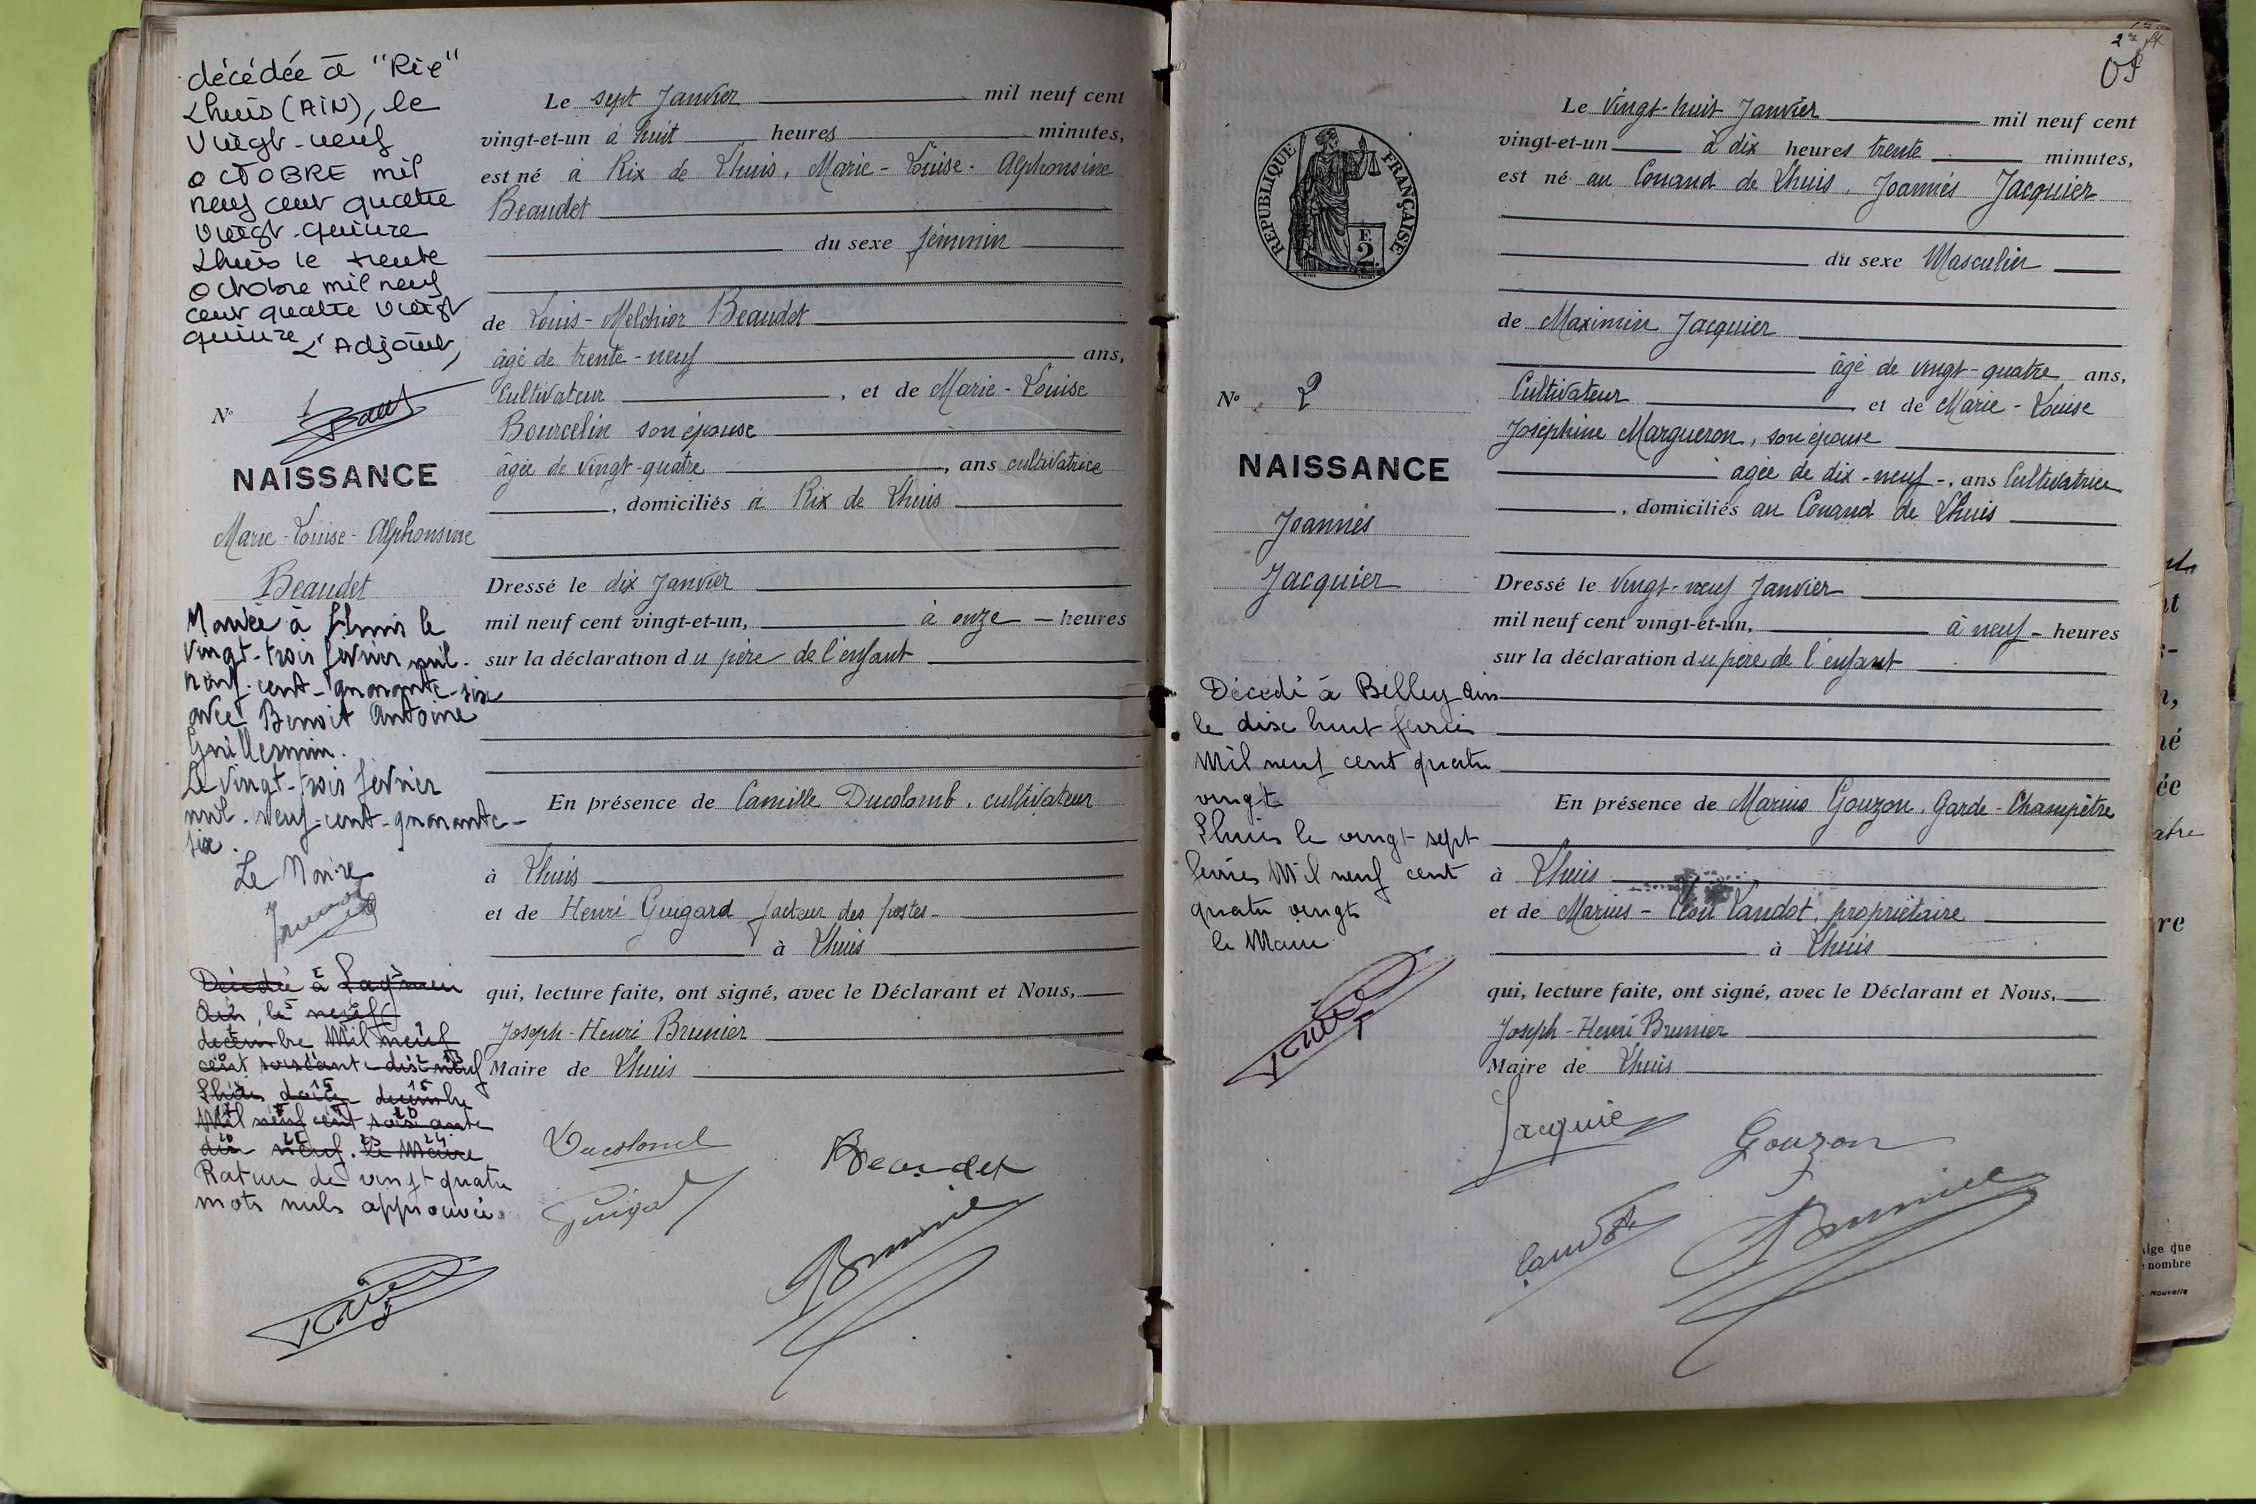 décédée à "Rix"
Lhuis (AIN), le
vingt-neuf
OCTOBRE mil
neuf cent quatre
vingt-quinze
Lhuis le trente
octobre mil neuf
cent quatre vingt
quinze L'Adjoint,
N° 1
NAISSANCE
Marie-Louise-Alphonsine
Beaudet
Mariée à Lhuis le
vingt-trois février mil-
neuf-cent-quarante-six
avec Benoit Antoine
Guillermin.
Le vingt-trois février
mil-neuf-cent-quarante-
six.
Le Maire
Décédé à Lagnieu
Ain, le neuf
décembre Mil neuf
cent soixante-dix-neuf
Lhuis douze décembre
Mil neuf cent soixante
dix neuf. le Maire
Rature de vingt quatre
mots nuls approuvée.
Le sept Janvier mil neuf cent
vingt-et-un à huit heures minutes,
est né à Rix de Lhuis, Marie-Louise-Alphonsine
Beaudet
du sexe féminin
de Louis-Melchior Beaudet
âgé de trente-neuf ans,
Cultivateur, et de Marie-Louise
Bourcelin son épouse
âgée de vingt-quatre, ans cultivatrice
, domiciliés à Rix de Lhuis
Dressé le dix Janvier
mil neuf cent vingt-et-un, à onze heures
sur la déclaration du père de l'enfant
En présence de Camille Ducolomb, cultivateur
à Lhuis
et de Henri Guigard facteur des postes
à Lhuis
qui, lecture faite, ont signé, avec le Déclarant et Nous,
Joseph-Henri Brunier
Maire de Lhuis
Ducolomb
Beaudet
Guigard
Brunier
RÉPUBLIQUE FRANÇAISE
F.
2
N° 2
NAISSANCE
Joannès
Jacquier
Décédé à Belley Ain
le dix huit février
Mil neuf cent quatre
vingt
Lhuis le vingt sept
février Mil neuf cent
quatre vingt
le Maire
Le vingt-huit Janvier mil neuf cent
vingt-et-un à dix heures trente minutes,
est né au Conand de Lhuis, Joannès Jacquier
du sexe Masculin
de Maximin Jacquier
âgé de vingt-quatre ans,
Cultivateur et de Marie-Louise
Joséphine Margueron, son épouse
âgée de dix-neuf-, ans Cultivatrice
, domiciliés au Conand de Lhuis
Dressé le vingt-neuf Janvier
mil neuf cent vingt-et-un, à neuf heures
sur la déclaration du père de l'enfant
En présence de Marius Gouzon, Garde-Champêtre
à Lhuis
et de Marius-Léon Landot, propriétaire
à Lhuis
qui, lecture faite, ont signé, avec le Déclarant et Nous,
Joseph-Henri Brunier
Maire de Lhuis
Jacquier
Gouzon
Landot
Brunier